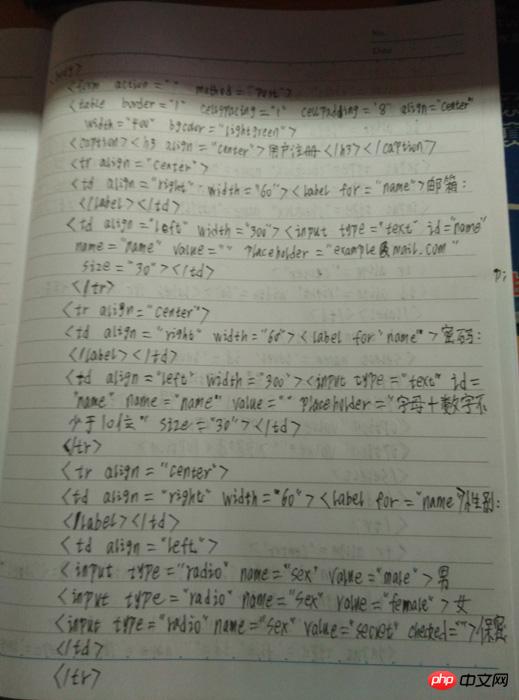 No.
Date
<body>
<form action="" method="post">
<table border="1" cellspacing="1" cellpadding="8" align="center"
width="400" bgcolor="lightgreen">
<caption><h3 align="center">用户注册</h3></caption>
<tr align="center">
<td align="right" width="60"><label for="name">邮箱:
</label></td>
<td align="left" width="300"><input type="text" id="name"
name="name" value="" placeholder="example@mail.com"
size="30"></td>
</tr>
<tr align="center">
<td align="right" width="60"><label for"name">密码:
</label></td>
<td align="left" width="300"><input type="text" id=
"name" name="name" value="" placeholder="字母+数字不
少于10位" size="30"></td>
</tr>
<tr align="center">
<td align="right" width="60"><label for="name">性别:
</label></td>
<td align="left">
<input type="radio" name="sex" value="male">男
<input type="radio" name="sex" value="female">女
<input type="radio" name="sex" value="secret" checked="">保密
</td>
</tr>
php 中文网